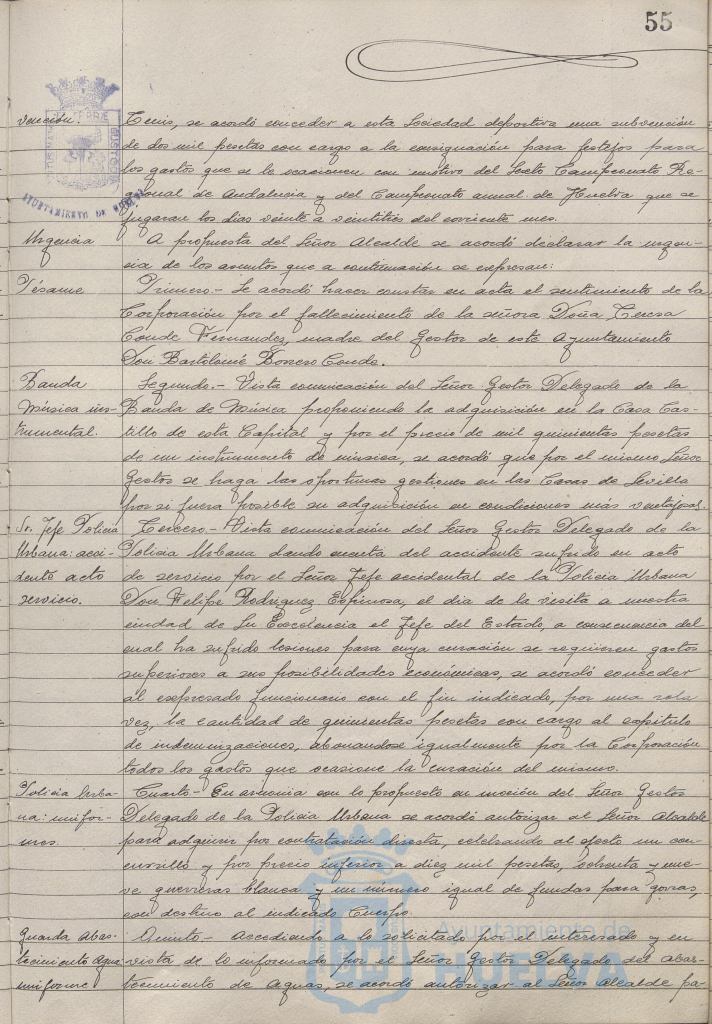 55
vención. Tenis, se acordó conceder a esta Sociedad deportiva una subvención
de dos mil pesetas con cargo a la consignación para festejos para
los gastos que se le ocasionen con motivo del Sexto Campeonato Re-
gional de Andalucia y del Campeonato anual de Huelva que se
jugaran los dias veinte a veintitres del corriente mes.
AYUNTAMIENTO DE HUELVA
Urgencia A propuesta del Señor Alcalde se acordó declarar la urgen-
cia de los asuntos que a continuación se expresan:
Pésame Primero.- Se acordó hacer constar en acta el sentimiento de la
Corporación por el fallecimiento de la señora Doña Teresa
Conde Fernandez, madre del Gestor de este Ayuntamiento
Don Bartolomé Borrero Conde.
Banda Segundo.- Vista comunicación del Señor Gestor Delegado de la
Música ins- Banda de Música proponiendo la adquisición en la Casa Cas-
trumental. tillo de esta Capital y por el precio de mil quinientas pesetas
de un instrumento de música, se acordó que por el mismo Señor
Gestor se haga las oportunas gestiones en las Casas de Sevilla
por si fuera posible su adquisición en condiciones más ventajosas.
Sr. Jefe Policia Tercero.- Vista comunicación del Señor Gestor Delegado de la
Urbana: acci- Policia Urbana dando cuenta del accidente sufrido en acto
dente acto de servicio por el Señor Jefe accidental de la Policia Urbana
servicio. Don Felipe Rodriguez Espinosa, el dia de la visita a nuestra
ciudad de Su Excelencia el Jefe del Estado, a consecuencia del
cual ha sufrido lesiones para cuya curación se requieren gastos
superiores a sus posibilidades económicas, se acordó conceder
al expresado funcionario con el fin indicado, por una sola
vez, la cantidad de quinientas pesetas con cargo al capitulo
de indemnizaciones, abonandose igualmente por la Corporación
todos los gastos que ocasione la curación del mismo.
Policia Urba- Cuarto.- En armonia con lo propuesto en moción del Señor Gestor
na: unifor- Delegado de la Policia Urbana se acordó autorizar al Señor Alcalde
mes. para adquirir por contratación directa, celebrando al efecto un con-
cursillo y por precio inferior a diez mil pesetas, ochenta y nue-
ve guerreras blanca y un número igual de fundas para gorras,
con destino al indicado Cuerpo.
Guarda Abas- Quinto.- Accediendo a lo solicitado por el interesado y en
tecimiento Agua: vista de lo informado por el Señor Gestor Delegado del Abas-
uniforme tecimiento de Aguas, se acordó autorizar al Señor Alcalde pa-
Ayuntamiento de
HUELVA